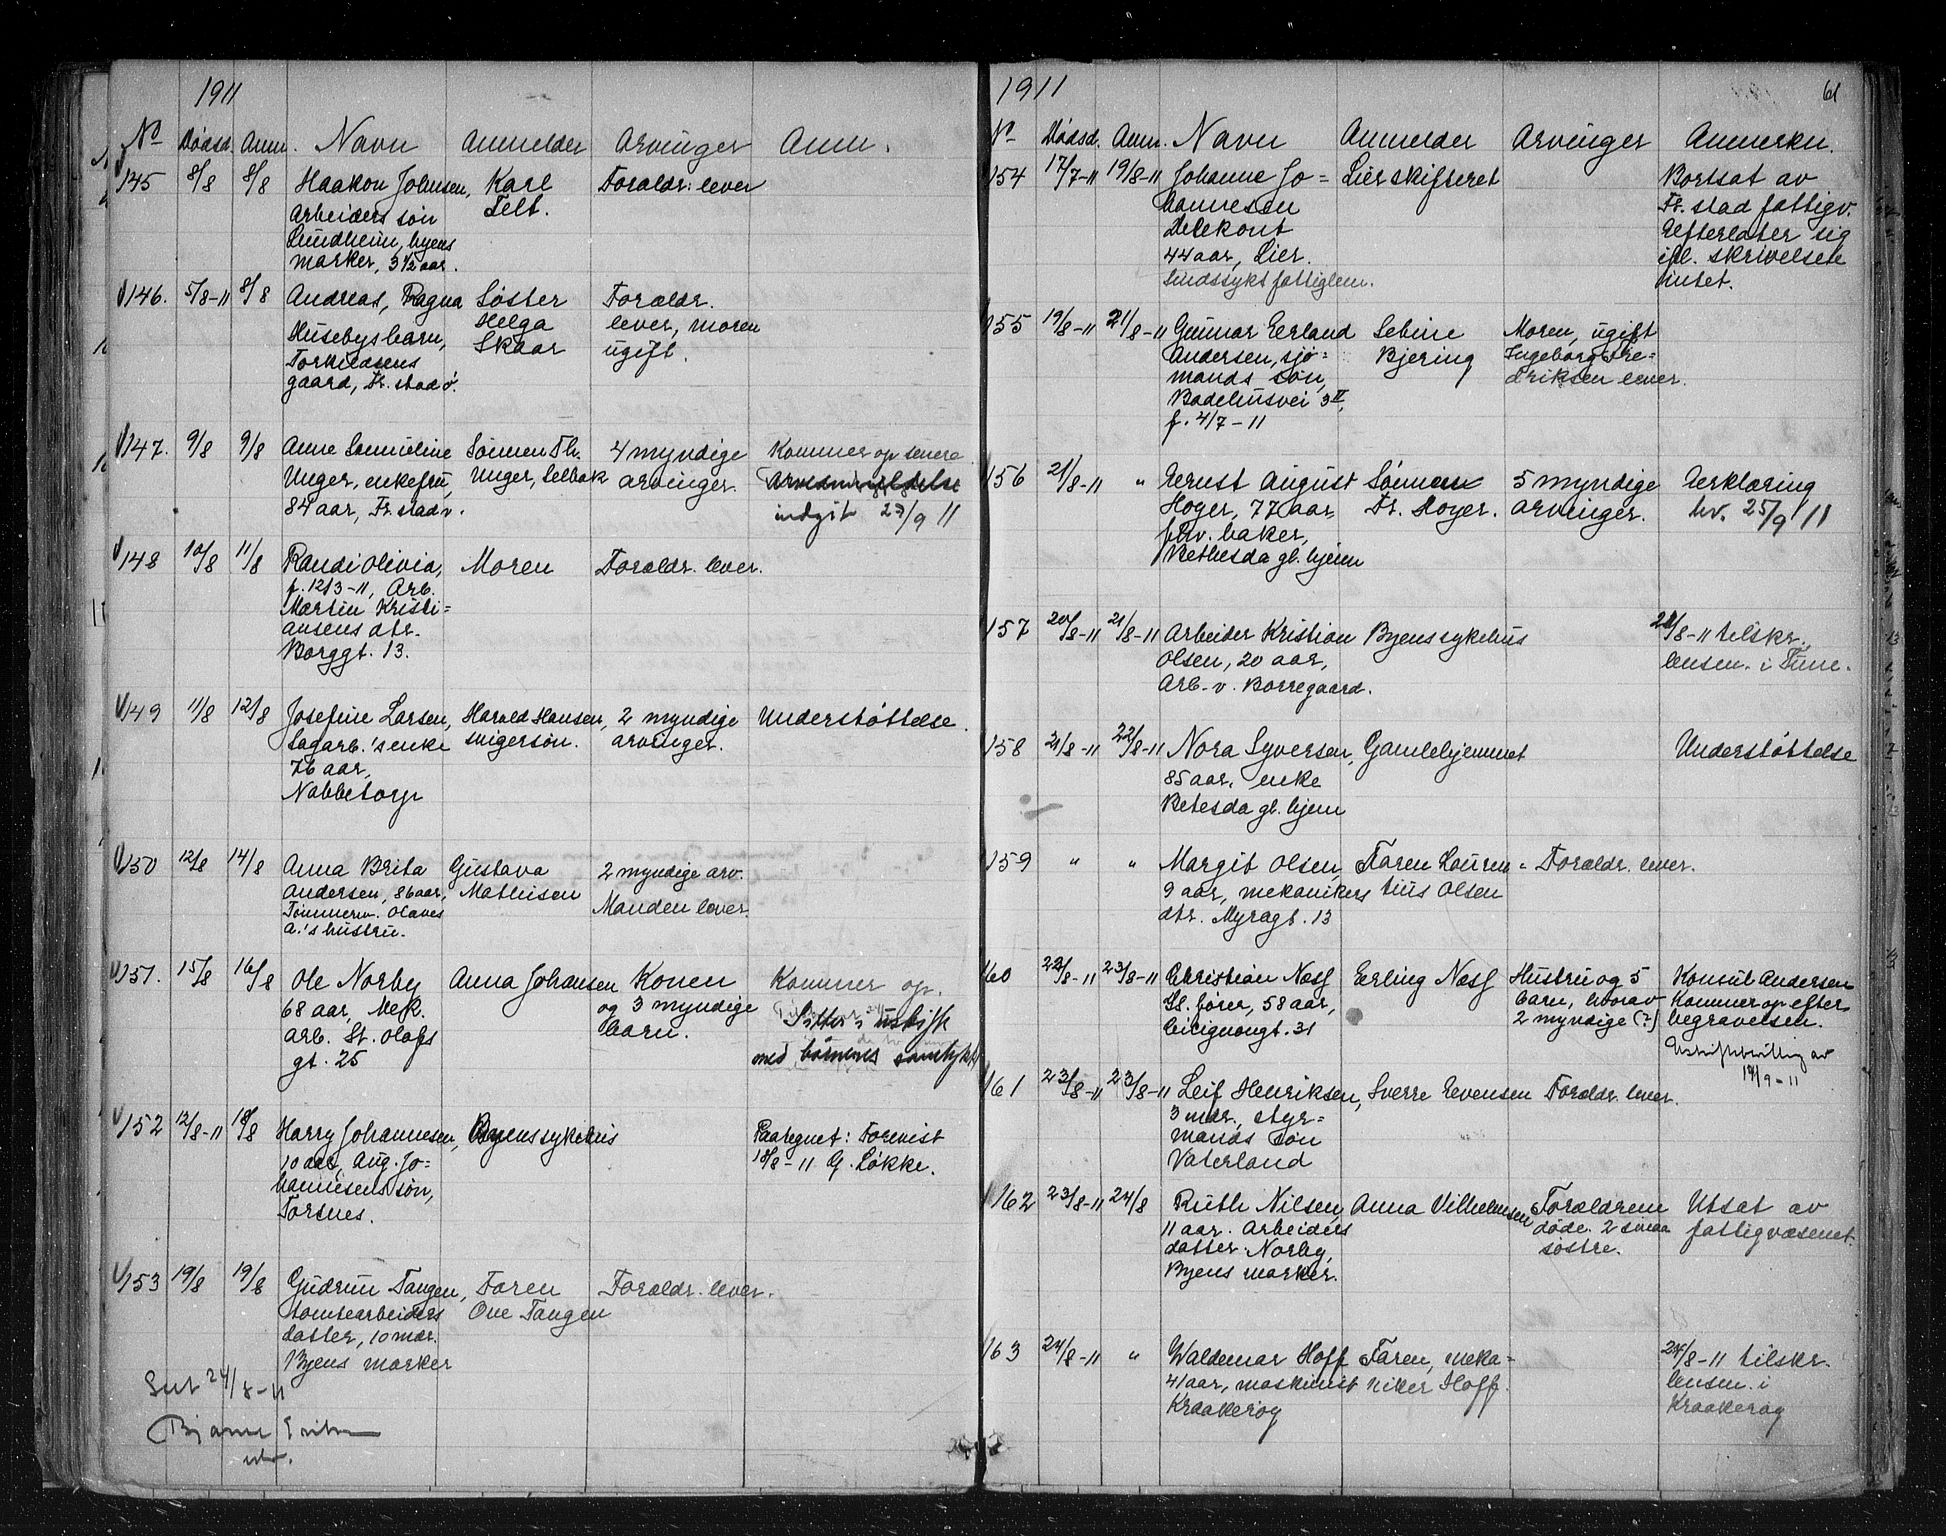 1911
No Dødsd. Anm. Navn Anmelder Arvinger Anm.
145 8/8 8/8 Haakon Johnsen, Karl Forældr. lever
Arbeiders søn Telt.
Lundheim, byens
marker, 3 1/2 aar.
146. 5/8-11 8/8 Andreas, Ragna Søster Forældr.
Husebys barn, Helga lever, moren
Torkildsens Skaar ugift.
gaard, Fr.stad o.
147. 9/8 9/8 Anne Sanneline Sønnen Th. 4 myndige Kommer op senere
Unger, enkefru, Unger, Selbak arvinger. Arvedmeldelse
84 aar, Fr.stad v. indgit 27/9 11
148 10/8 11/8 Randi Olivia, Moren Forældr. lever.
f. 12/3-11, Arb.
Martin Kristi=
ansens dtr.
Borggt. 13.
149 11/8 12/8 Josefine Larsen, Harald Hansen, 2 myndige Understøttelse.
Sagarb.'s enke svigersøn. arvinger.
76 aar,
Nabbetorp
150 12/8 14/8 Anna Brita Gustava 2 myndige arv.
Andersen, 86 aar, Mathisen Manden lever.
Tømmerm. Olaves
A.'s hustru.
151. 15/8 16/8 Ole Norby Anna Johansen Konen Kommer op.
68 aar, Mek. og 3 myndige Sitter i uskift
arb. St. Olafs barn. med børnenes samtykke
gt. 25
152 12/8-11 18/8 Harry Johannesen, Byens sykehus Paategnet: Forevist
10 aar, Aug. Jo= 18/8-11 G. Løkke.
hannesens søn,
Torsnes.
153 19/8 19/8 Gudrun Tangen, Faren Forældr. lever.
Tomtearbeiders Ove Tangen
datter, 10 mdr.
Byens marker
Set 24/8-11
Bjarne Eriksen
1911 61
No Dødsd. Anm. Navn Anmelder Arvinger Anmerkn.
154 17/7-11 19/8-11 Johanne Jo= Lier skifteret Bortsat av
hannesen Fr.stad fattigv.
Delekont Efterlater sig
44 aar, Lier. ifl. skrivelsen
Sindssykt fattiglem. intet.
155 19/8-11 21/8-11 Gunnar Erland Sebine Moren, ugift
Andersen, sjø= Bjering Ingeborg Fre=
mands søn, driksen lever.
Badehusvei 3 II,
f. 4/7-11
156 21/8-11 " Ernst August Sønnen 5 myndige Erklæring
Hoyer, 77 aar Fr. Hoyer. arvinger. hv. 25/9 11
fhv. baker,
Bethesda gl. hjem
157 20/8-11 21/8-11 Arbeider Kristian Byens sykehus 22/8-11 tilskr.
Olsen, 20 aar, lensm. i Tune.
Arb. v. Borregaard.
158 21/8-11 22/8-11 Nora Syversen, Gamlehjemmet Understøttelse
85 aar, enke
Betesda gl. hjem
159 " " Margit Olsen, Faren Lauren= Forældr. lever.
9 aar, mekanikers tius Olsen
dtr. Myragt. 13
160 22/8-11 23/8-11 Christian Næss Erling Næss Hustru og 5 Konsul Andersen
Sk. fører, 58 aar, barn, hvorav kommer op efter
Ciciignongt. 31 2 myndige (?) begravelsen.
Uskiftebevilling av
14/9-11
161 23/8-11 23/8-11 Leif Henriksen, Sverre Evensen Forældr. lever.
3 mdr., styr=
mands søn
Vaterland
162 23/8-11 24/8 Ruth Nilsen, Anna Vilhelmsen Forældrene Utsat av
11 aar. Arbeiders døde. 2 smaa fattigvæsenet.
datter. Norby, søstre.
Byens marker.
163 24/8-11 " Waldemar Hoff Faren, meka= 24/8-11 tilskr.
41 aar, maskinist niker Hoff. lensm. i
Kraakerøy Kraakerøy